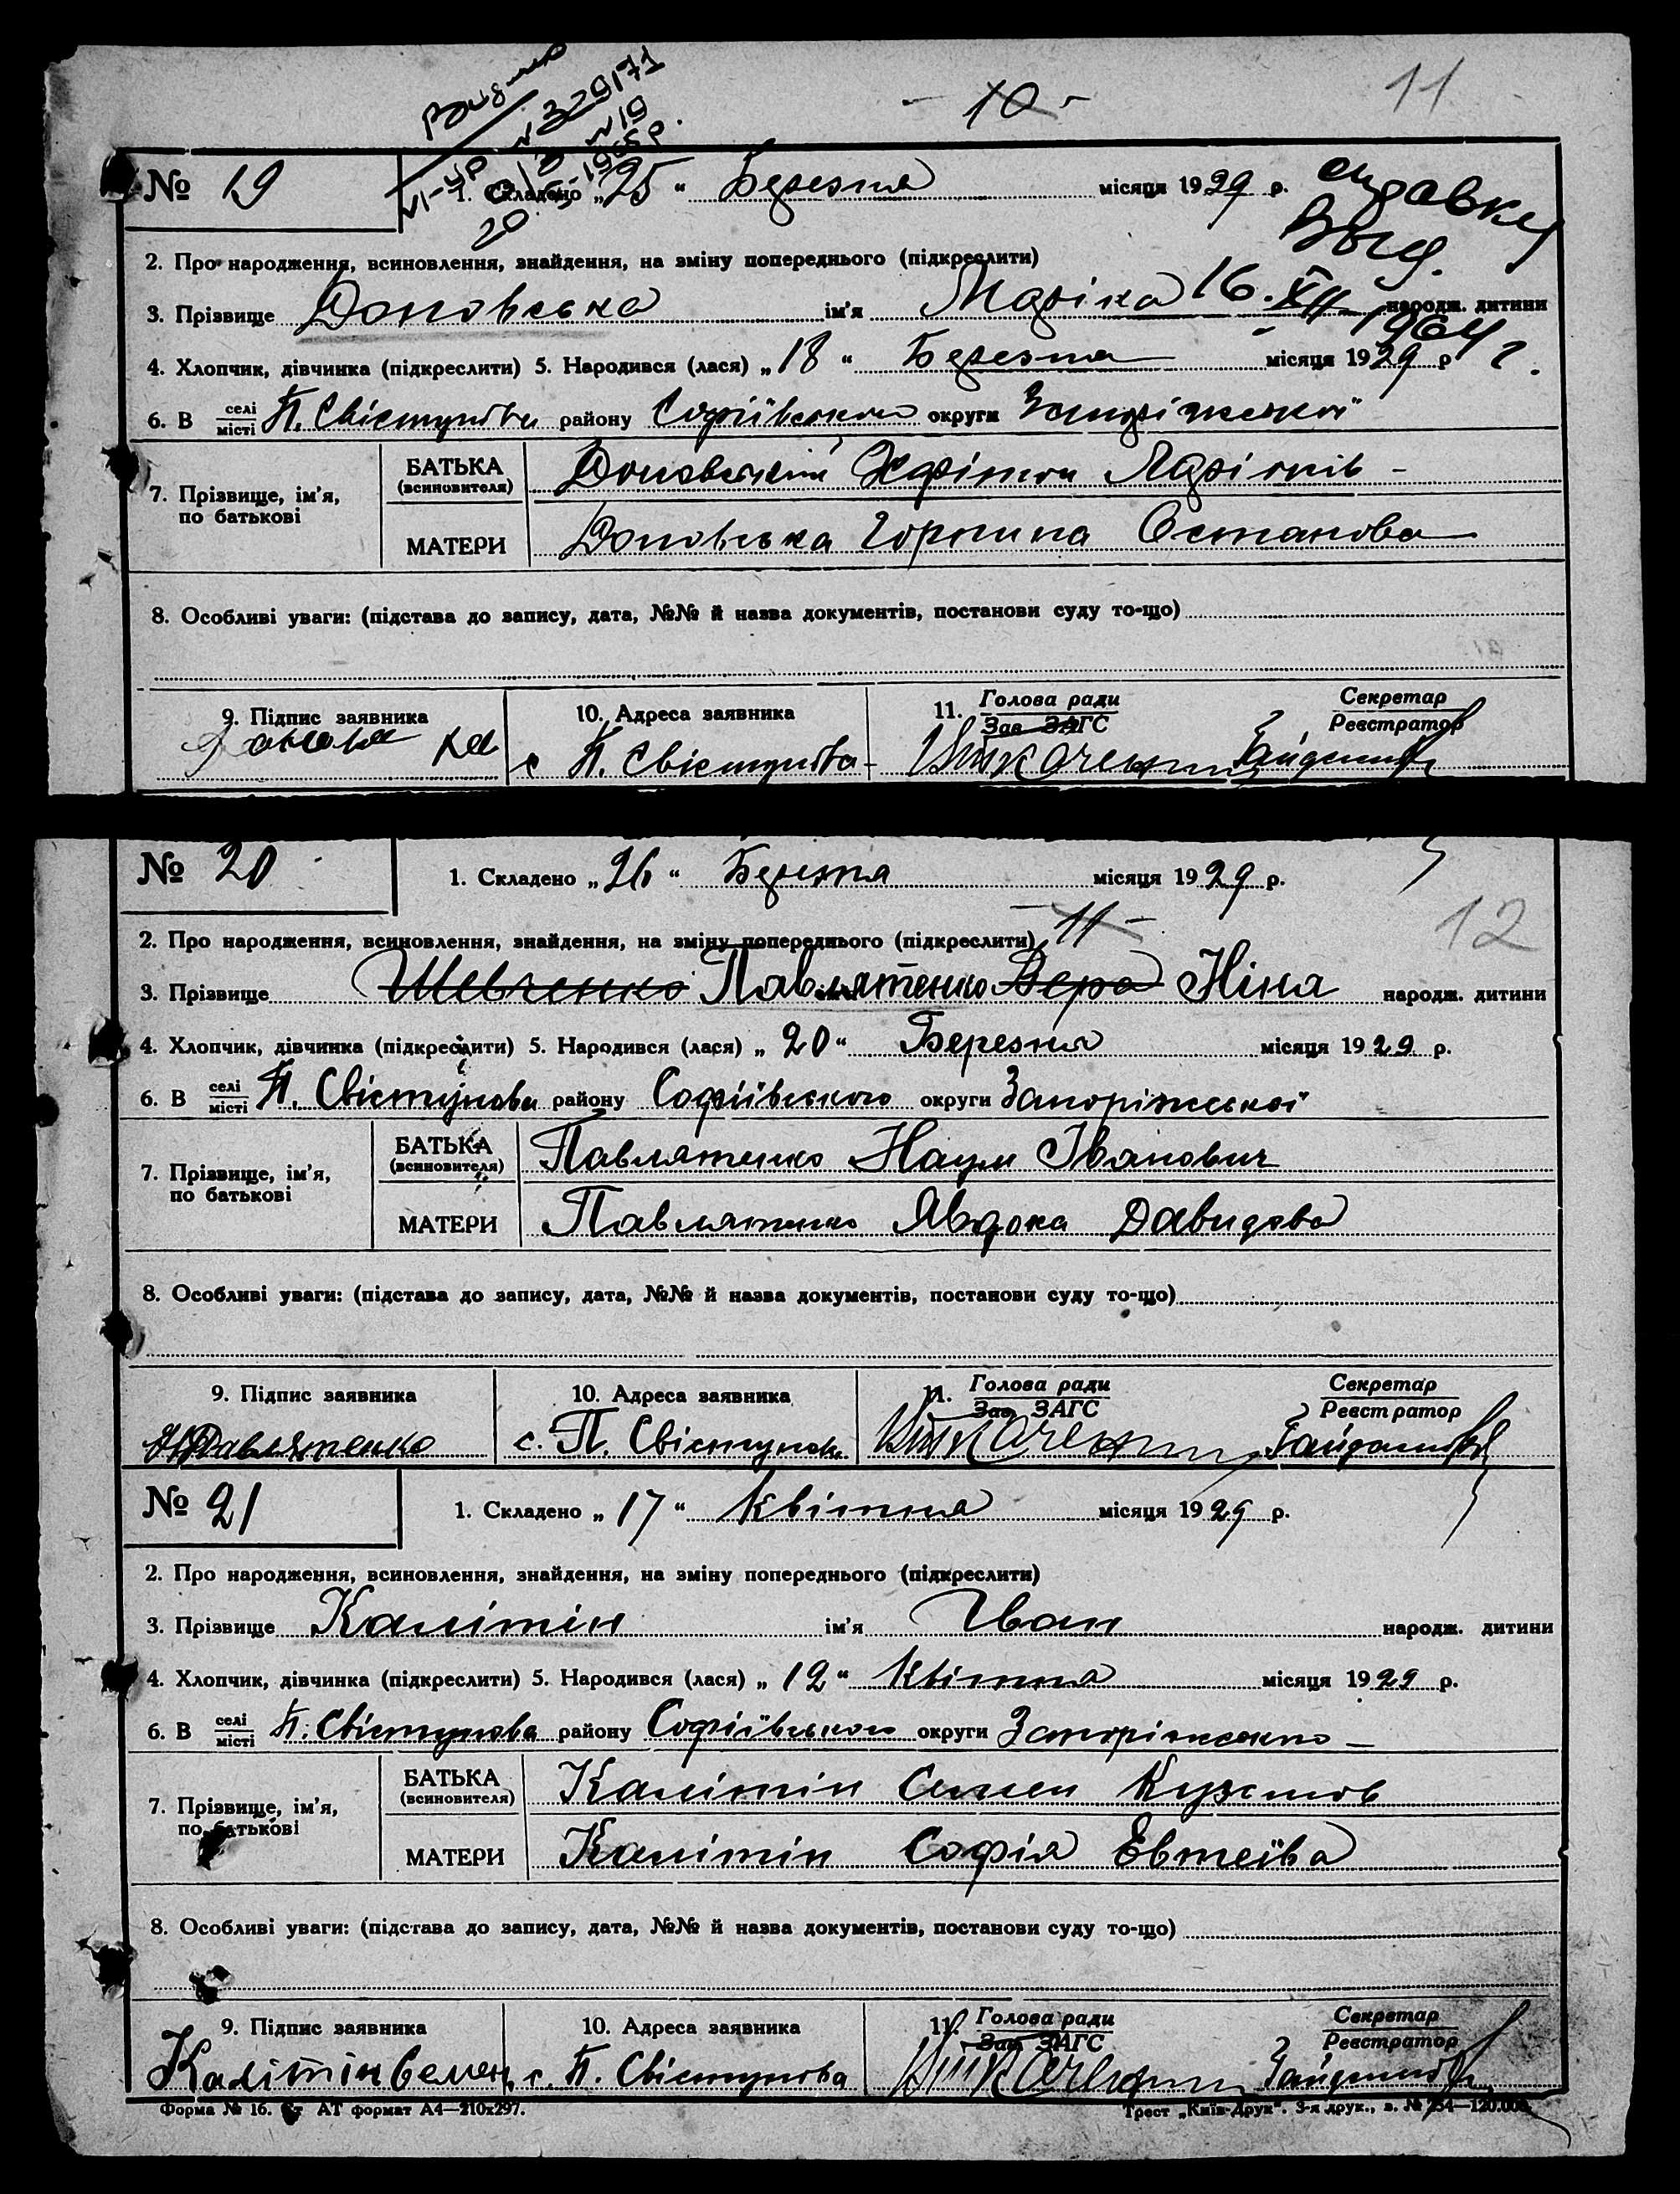 - 10 -
11
№ 19
1. Складено „25“ Березня місяця 1929 р.
справку
выд.
16. XII 1964 г.
2. Про народження, всиновлення, знайдення, на зміну попереднього (підкреслити)
3. Прізвище Доновська ім'я Маріка народж. дитини
4. Хлопчик, дівчинка (підкреслити) 5. Народився (лася) „18“ Березня місяця 1929 р
6. В селі місті П. Свістунова району Софіївського округи Запоріжської
7. Прізвище, ім'я, по батькові
БАТЬКА (всиновителя) Доновський Харітон
МАТЕРИ Доновська Горпина Остапова
8. Особливі уваги: (підстава до запису, дата, №№ й назва документів, постанови суду то-що)
9. Підпис заявника
10. Адреса заявника
11. Голова ради Зав ЗАГС
Секретар Реєстратор
с П. Свістунова
№ 20
1. Складено „26“ Березня місяця 1929 р.
- 11 -
12
2. Про народження, всиновлення, знайдення, на зміну попереднього (підкреслити)
3. Прізвище Шевченко Павлятенко Вера Ніна народж. дитини
4. Хлопчик, дівчинка (підкреслити) 5. Народився (лася) „20“ Березня місяця 1929 р.
6. В селі місті П. Свістунова району Софіївського округи Запоріжської
7. Прізвище, ім'я, по батькові
БАТЬКА (всиновителя) Павлятенко Наум Іванович
МАТЕРИ Павлятенко Явдока Давидова
8. Особливі уваги: (підстава до запису, дата, №№ й назва документів, постанови суду то-що)
9. Підпис заявника
10. Адреса заявника
11. Голова ради Зав ЗАГС
Секретар Реєстратор
Павлятенко
с. П. Свістунова
№ 21
1. Складено „17“ Квітня місяця 1929 р.
2. Про народження, всиновлення, знайдення, на зміну попереднього (підкреслити)
3. Прізвище Калітін ім'я Іван народж. дитини
4. Хлопчик, дівчинка (підкреслити) 5. Народився (лася) „12“ Квітня місяця 1929 р.
6. В селі місті П. Свістунова району Софіївського округи Запоріжсько
7. Прізвище, ім'я, по батькові
БАТЬКА (всиновителя) Калітін Семен Кузьмов
МАТЕРИ Калітін Софія Евтеїва
8. Особливі уваги: (підстава до запису, дата, №№ й назва документів, постанови суду то-що)
9. Підпис заявника
10. Адреса заявника
11. Голова ради Зав ЗАГС
Секретар Реєстратор
Калітін Семен
с. П. Свістунова
Форма № 16. Ст АТ формат А4—210x297.
Трест „Київ-Друк“. 3-я друк., з. № 754—120.000.